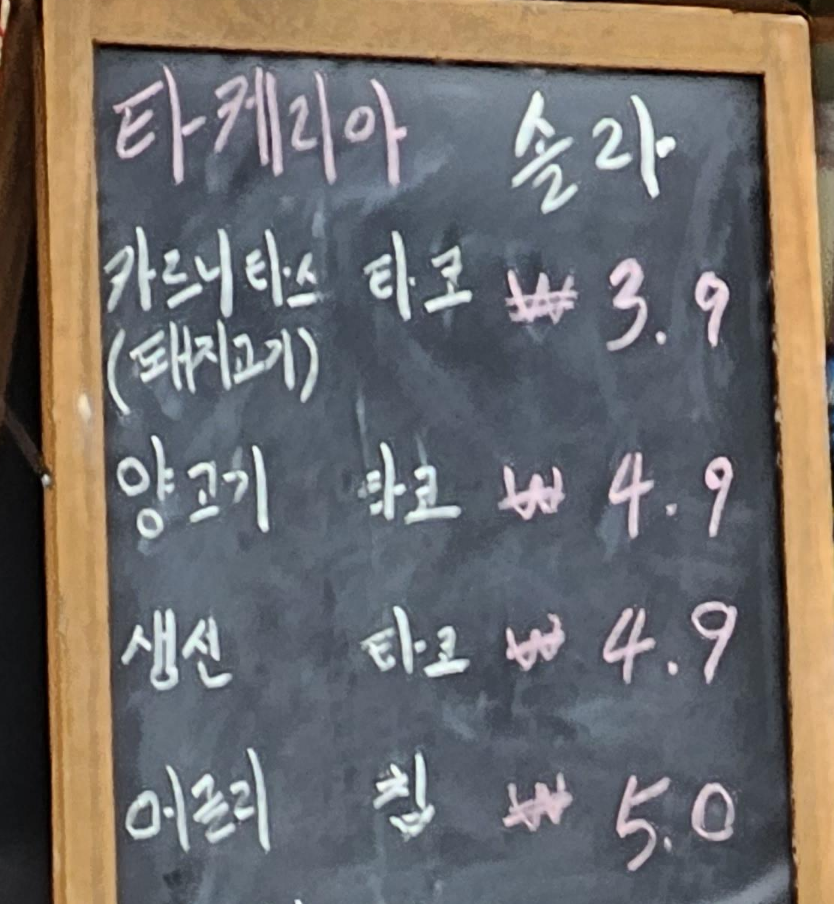 타케리아 솔라
카르니타스 타코 ₩ 3.9
(돼지고기)
양고기 타코 ₩ 4.9
생선 타코 ₩ 4.9
어글리 칩 ₩ 5.0